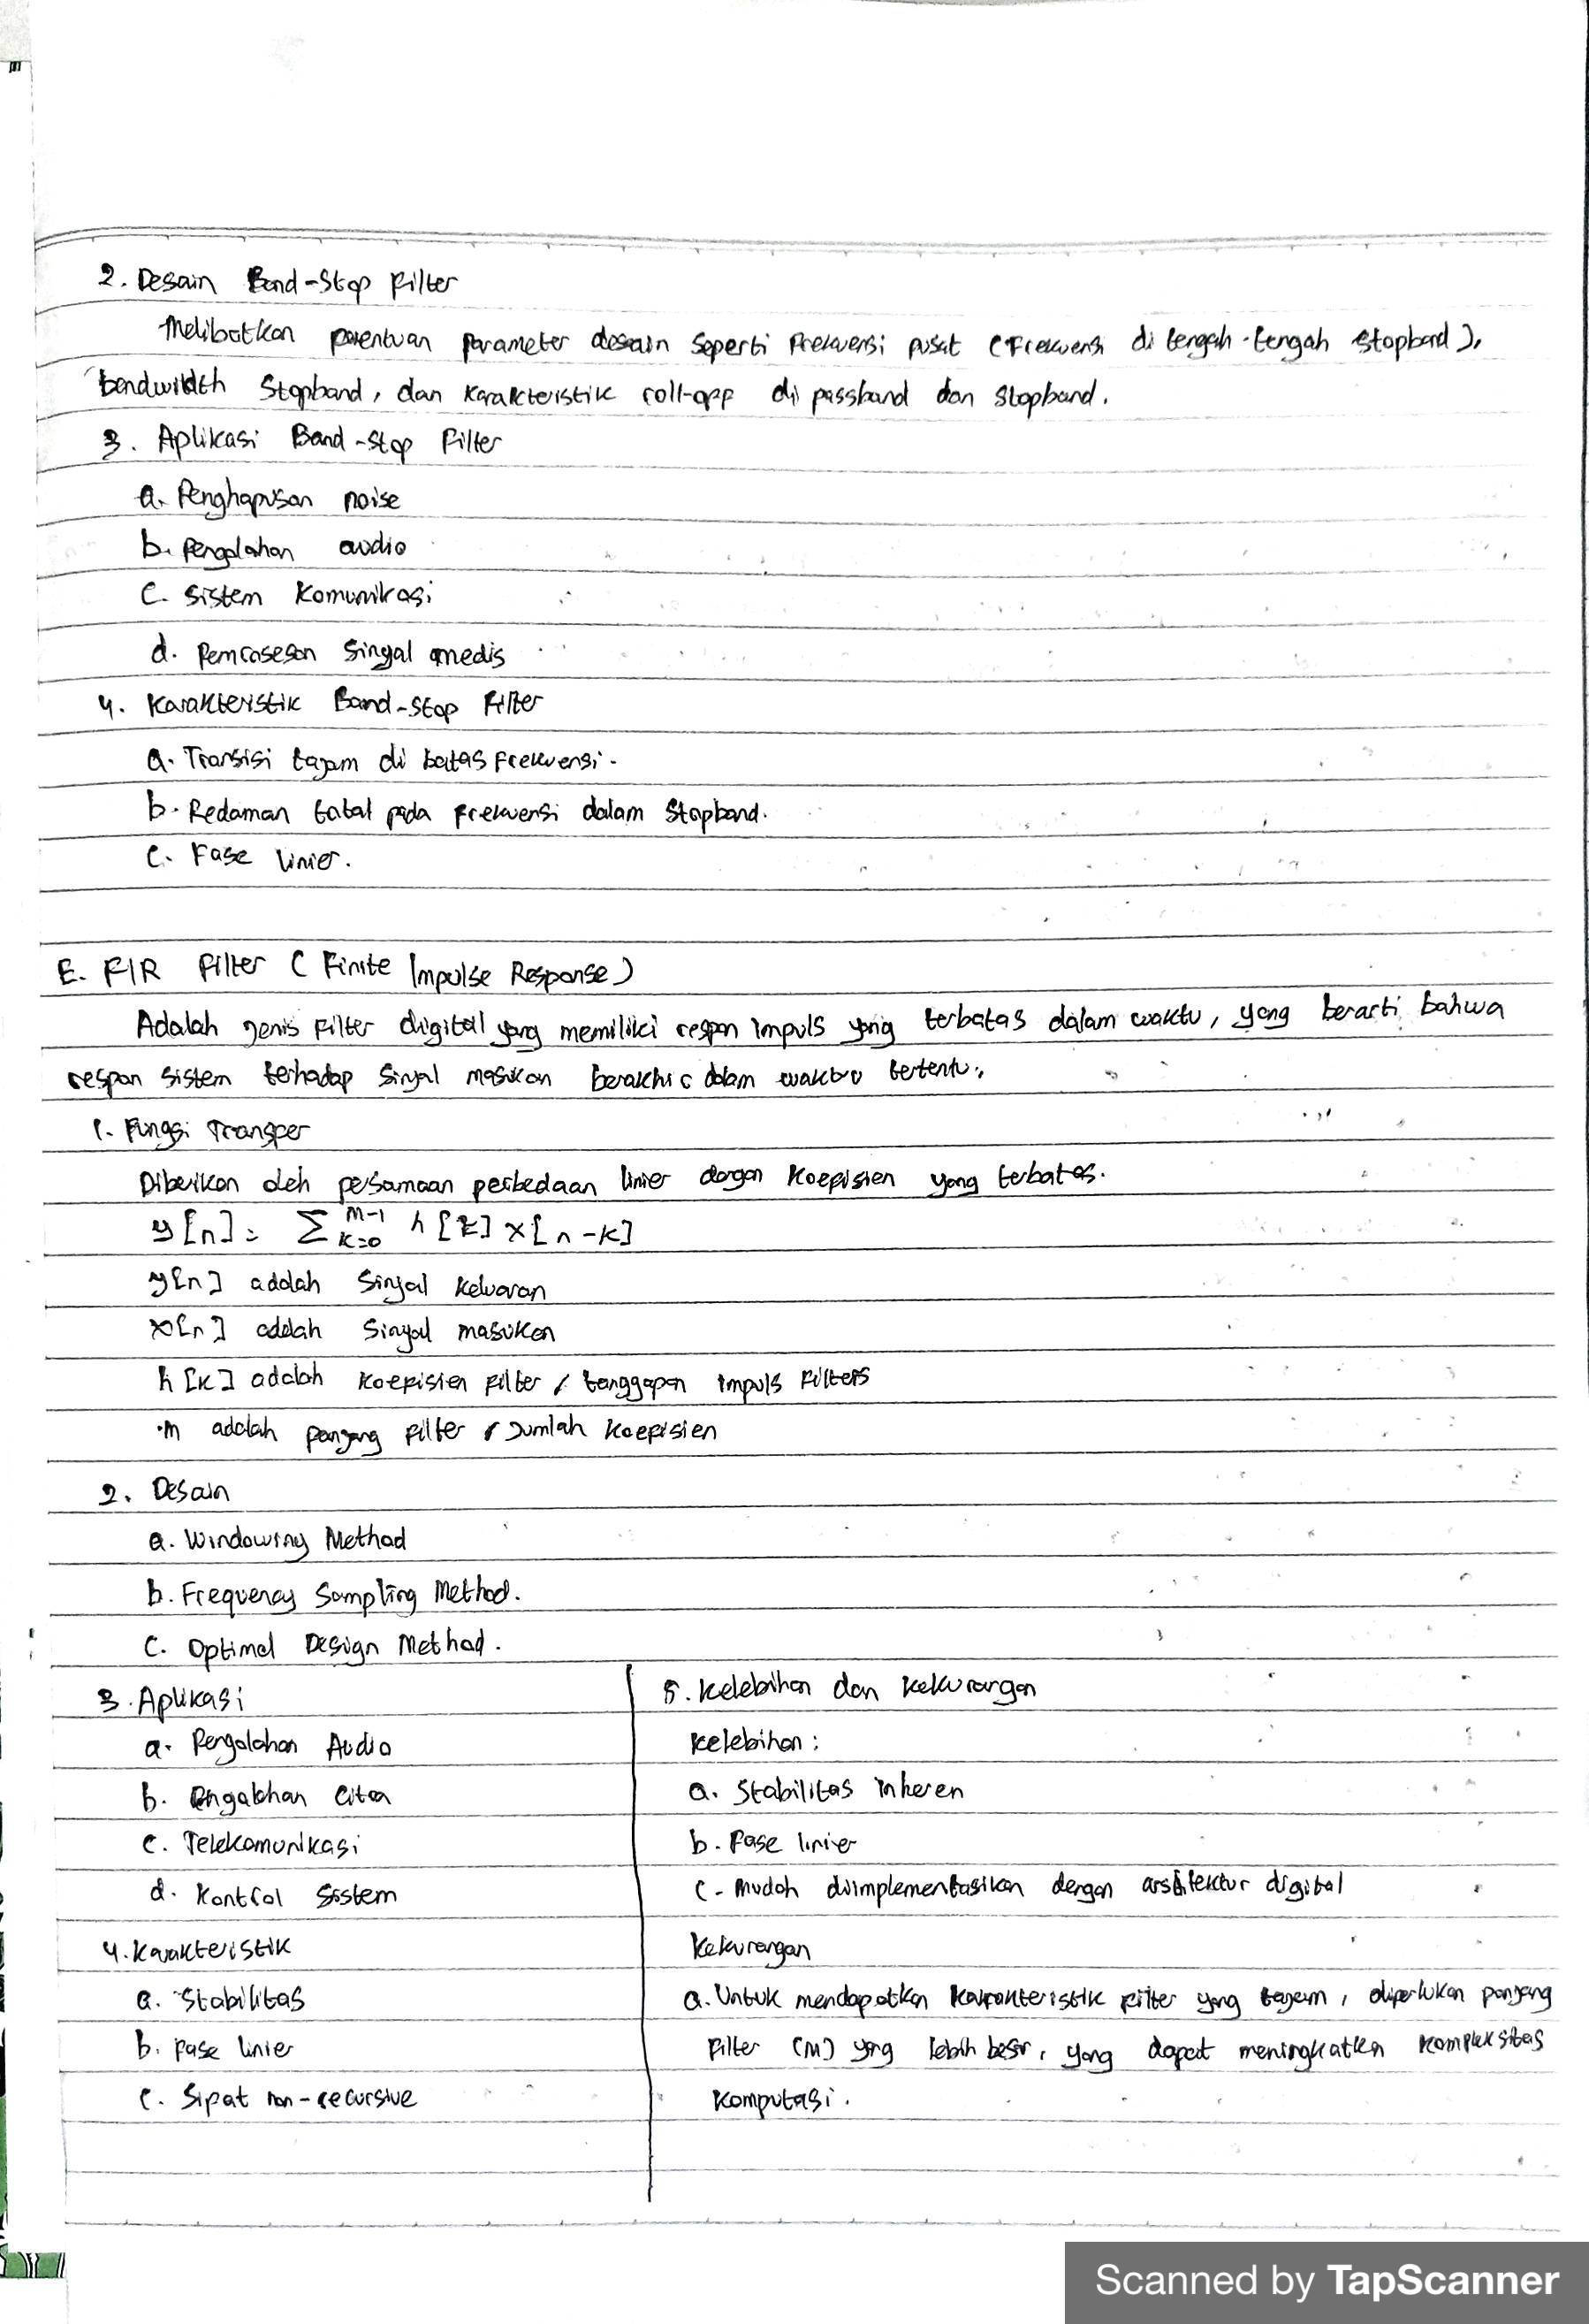 2. Desain Band-Stop Filter
Melibatkan penentuan parameter desain seperti frekuensi pusat (frekuensi di tengah-tengah stopband),
bandwidth stopband, dan karakteristik roll-off di passband dan stopband.
3. Aplikasi Band-Stop Filter
a. Penghapusan noise
b. Pengolahan audio
c. Sistem komunikasi
d. Pemrosesan sinyal medis
4. Karakteristik Band-Stop Filter
a. Transisi tajam di batas frekuensi.
b. Redaman total pada frekuensi dalam stopband.
c. Fase linier.
E. FIR Filter (Finite Impulse Response)
Adalah jenis filter digital yang memiliki respon impuls yang terbatas dalam waktu, yang berarti bahwa
respon sistem terhadap sinyal masukan berakhir dalam waktu tertentu.
1. Fungsi Transfer
Diberikan oleh persamaan perbedaan linier dengan koefisien yang terbatas.
y[n] = ∑ M-1 k=0 h[k] x[n-k]
y[n] adalah sinyal keluaran
x[n] adalah sinyal masukan
h[k] adalah koefisien filter / tanggapan impuls filters
M adalah panjang filter / jumlah koefisien
2. Desain
a. Windowing Method
b. Frequency Sampling Method.
c. Optimal Design Method.
3. Aplikasi
a. Pengolahan Audio
b. Pengolahan Citra
c. Telekomunikasi
d. Kontrol Sistem
4. Karakteristik
a. Stabilitas
b. Fase linier
c. Sifat non-recursive
5. Kelebihan dan kekurangan
Kelebihan :
a. Stabilitas inheren
b. Fase linier
c. Mudah diimplementasikan dengan arsitektur digital
Kekurangan
a. Untuk mendapatkan karakteristik filter yang tajam, diperlukan panjang
filter (M) yang lebih besar, yang dapat meningkatkan kompleksitas
komputasi.
Scanned by TapScanner